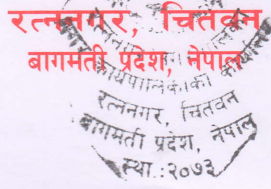 रत्ननगर, चितवन
बागमती प्रदेश, नेपाल
कार्यपालिकाको
रत्ननगर, चितवन
बागमती प्रदेश, नेपाल
स्था.:२०७३